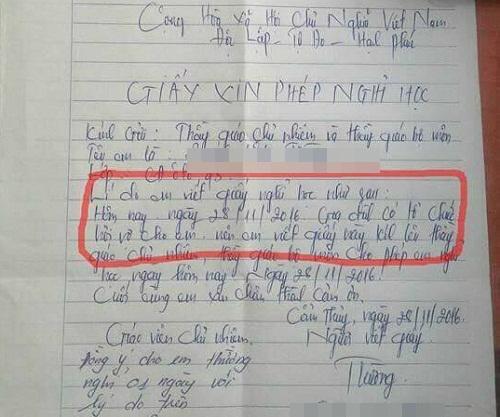 Cộng Hòa Xã Hội Chủ Nghĩa Việt Nam
Độc Lập - Tự Do - Hạnh phúc
GIẤY XIN PHÉP NGHỈ HỌC
Kính Gửi: Thầy giáo chủ nhiệm và thầy giáo bộ môn
Tên em là:
Lớp
Lí do em viết giấy nghỉ học như sau:
Hôm nay ngày 28/11/2016. Gia đình có tổ chức
cho em. nên em viết giấy này kính lên thầy
giáo chủ nhiệm thầy giáo bộ môn cho phép em nghỉ
học ngày hôm nay Ngày 28/11/2016.
Cuối cùng em xin chân thành cảm ơn.
Cẩm Thủy, ngày 28/11/2016
Giáo viên chủ nhiệm
Người viết giấy
Đồng ý cho em thường
nghỉ 01 ngày với
lý do trên
Thường.